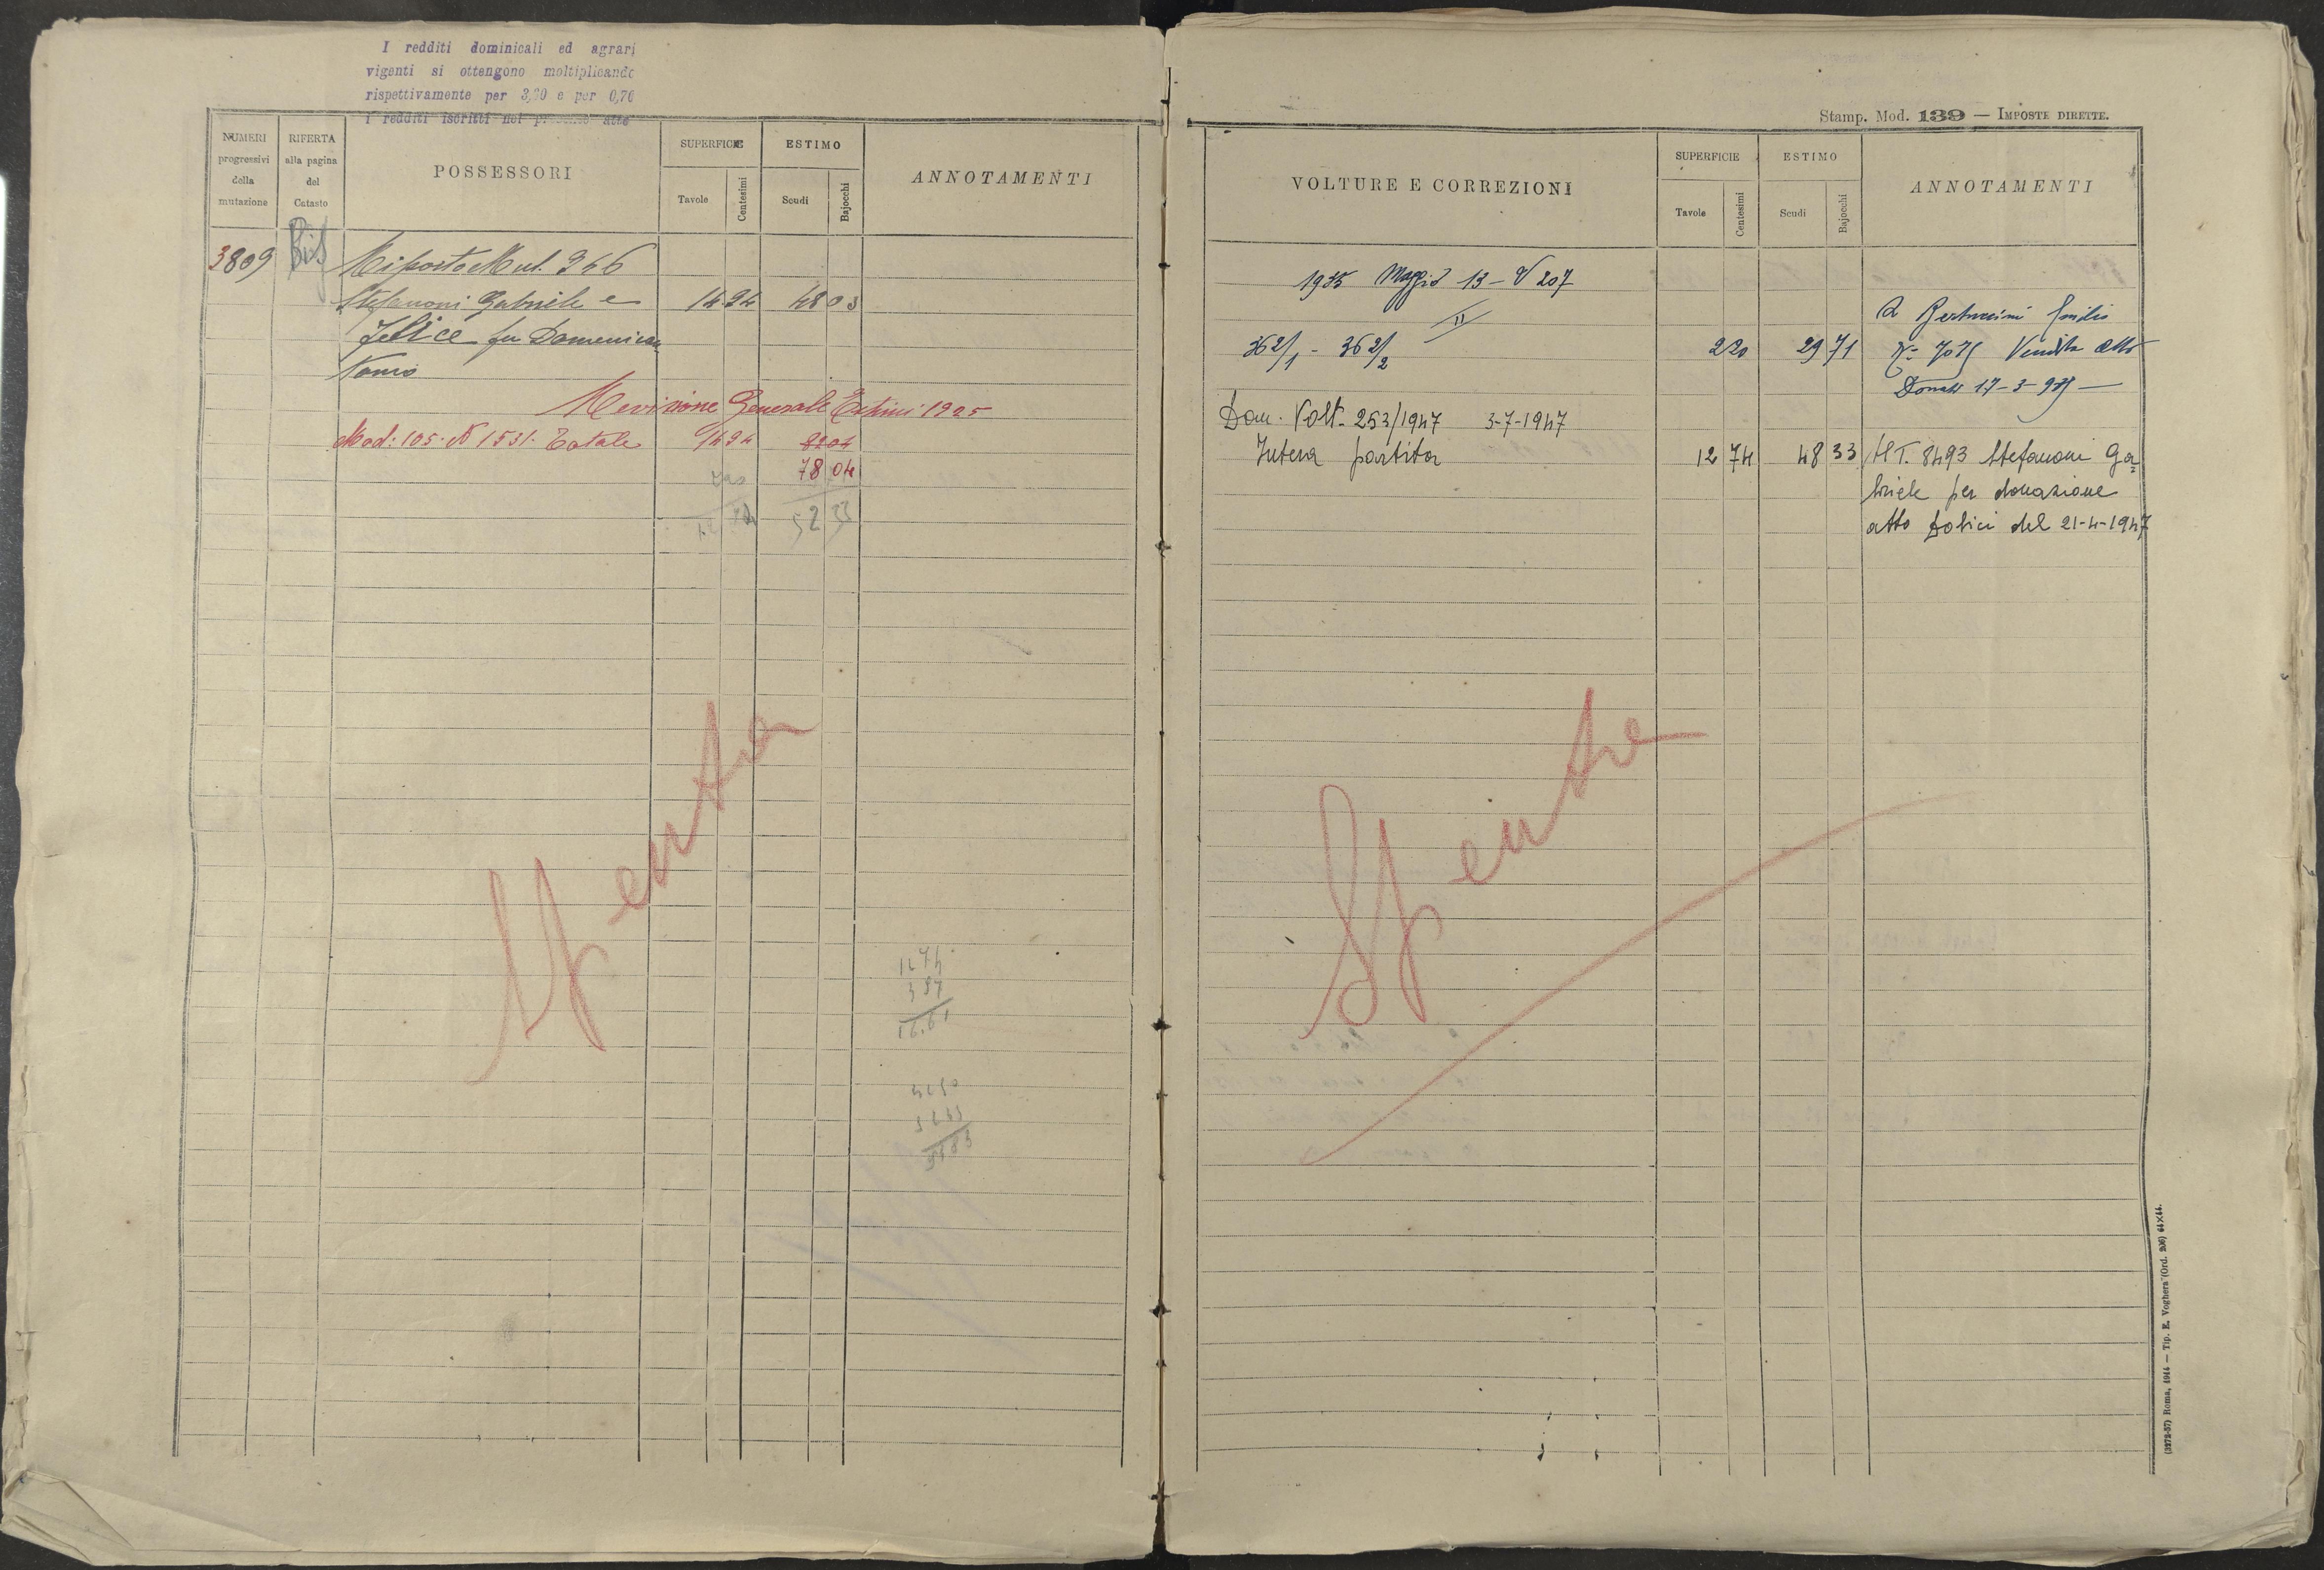 I redditi dominicali ed agrari
vigenti si ottengono moltiplicando
rispettivamente per 3,20 e per 0,70
i redditi iscritti nel presente atto
NUMERI progressivi della mutazione
RIFERTA alla pagina del Catasto
POSSESSORI
SUPERFICIE
Tavole
Centesimi
ESTIMO
Scudi
Bajocchi
ANNOTAMENTI
3809 Bis Riporto Mut. 346
Stefanoni Gabriele e 14 94 48 03
Felice fu Domenican
tonio
Revisione Generale Estimi 1925
Mod: 105. N 1531. Totale 14 94 8204
78 04
220
12 74 52 33
Spenta
12 74
3 87
16.61
Stamp. Mod. 139 — IMPOSTE DIRETTE.
VOLTURE E CORREZIONI
SUPERFICIE
Tavole
Centesimi
ESTIMO
Scudi
Bajocchi
ANNOTAMENTI
1935 Maggio 13 - V 207
A Bertuccini
362/1 - 362/2 2 20 29 71 Vendita Atto
17-3-935
Dom. Volt. 253/1947 3-7-1947
Intera partita 12 74 48 33 All'T. 8493 Stefanoni Ga=
briele per donazione
atto del 21-4-1947
Spenta
(3272-57) Roma, 1914 — Tip. E. Voghera (Ord. 206) 44×44.